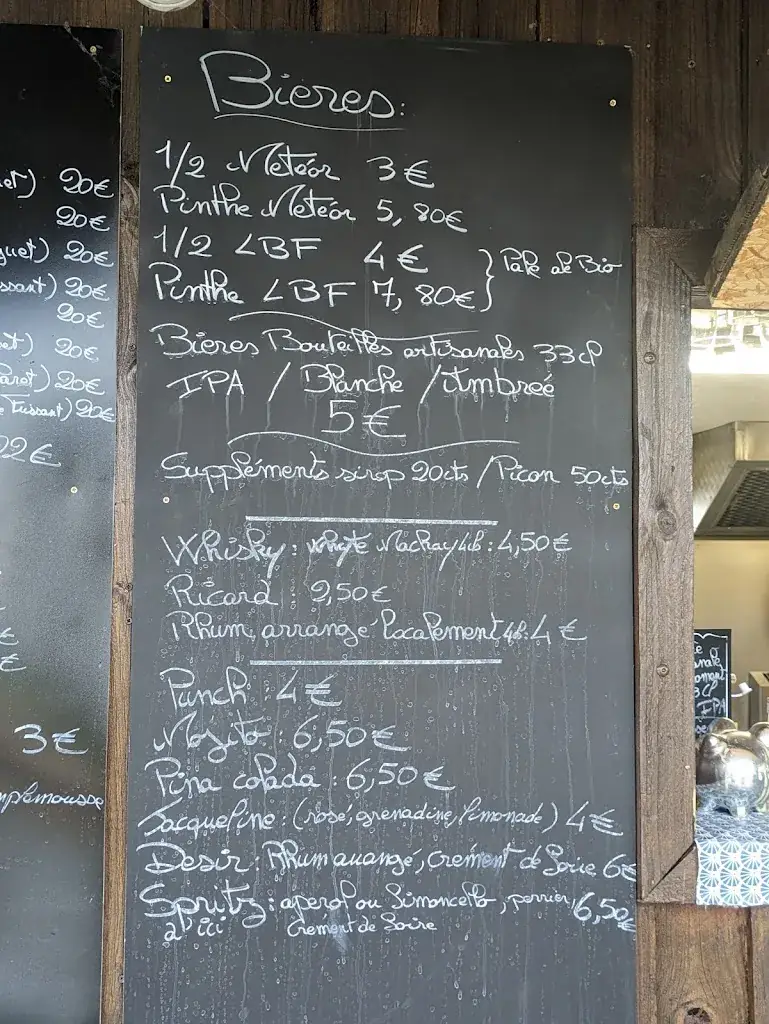 Bières:
1/2 Météor 3€
Pinthe Météor 5,80€
1/2 LBF 4€
Pinthe LBF 7,80€
Pale ale Bio
Bières Bouteilles artisanales 33cl
IPA / Blanche / Ambreé
5€
Suppléments sirop 20cts / Picon 50cts
Whisky: Whyte Mackay 4cl: 4,50€
Ricard: 2,50€
Rhum arrangé localement 4cl: 4€
Punch: 4€
Mojito: 6,50€
Pina colada: 6,50€
Jacqueline: (rosé, grenadine, limonade) 4€
Desir: Rhum arrangé, crément de Loire 6€
Spritz: aperol ou Limoncello, perrier, 6,50€
d'ici crément de Loire
20€
20€
20€
20€
20€
20€
20€
20€
22€
3€
IPA